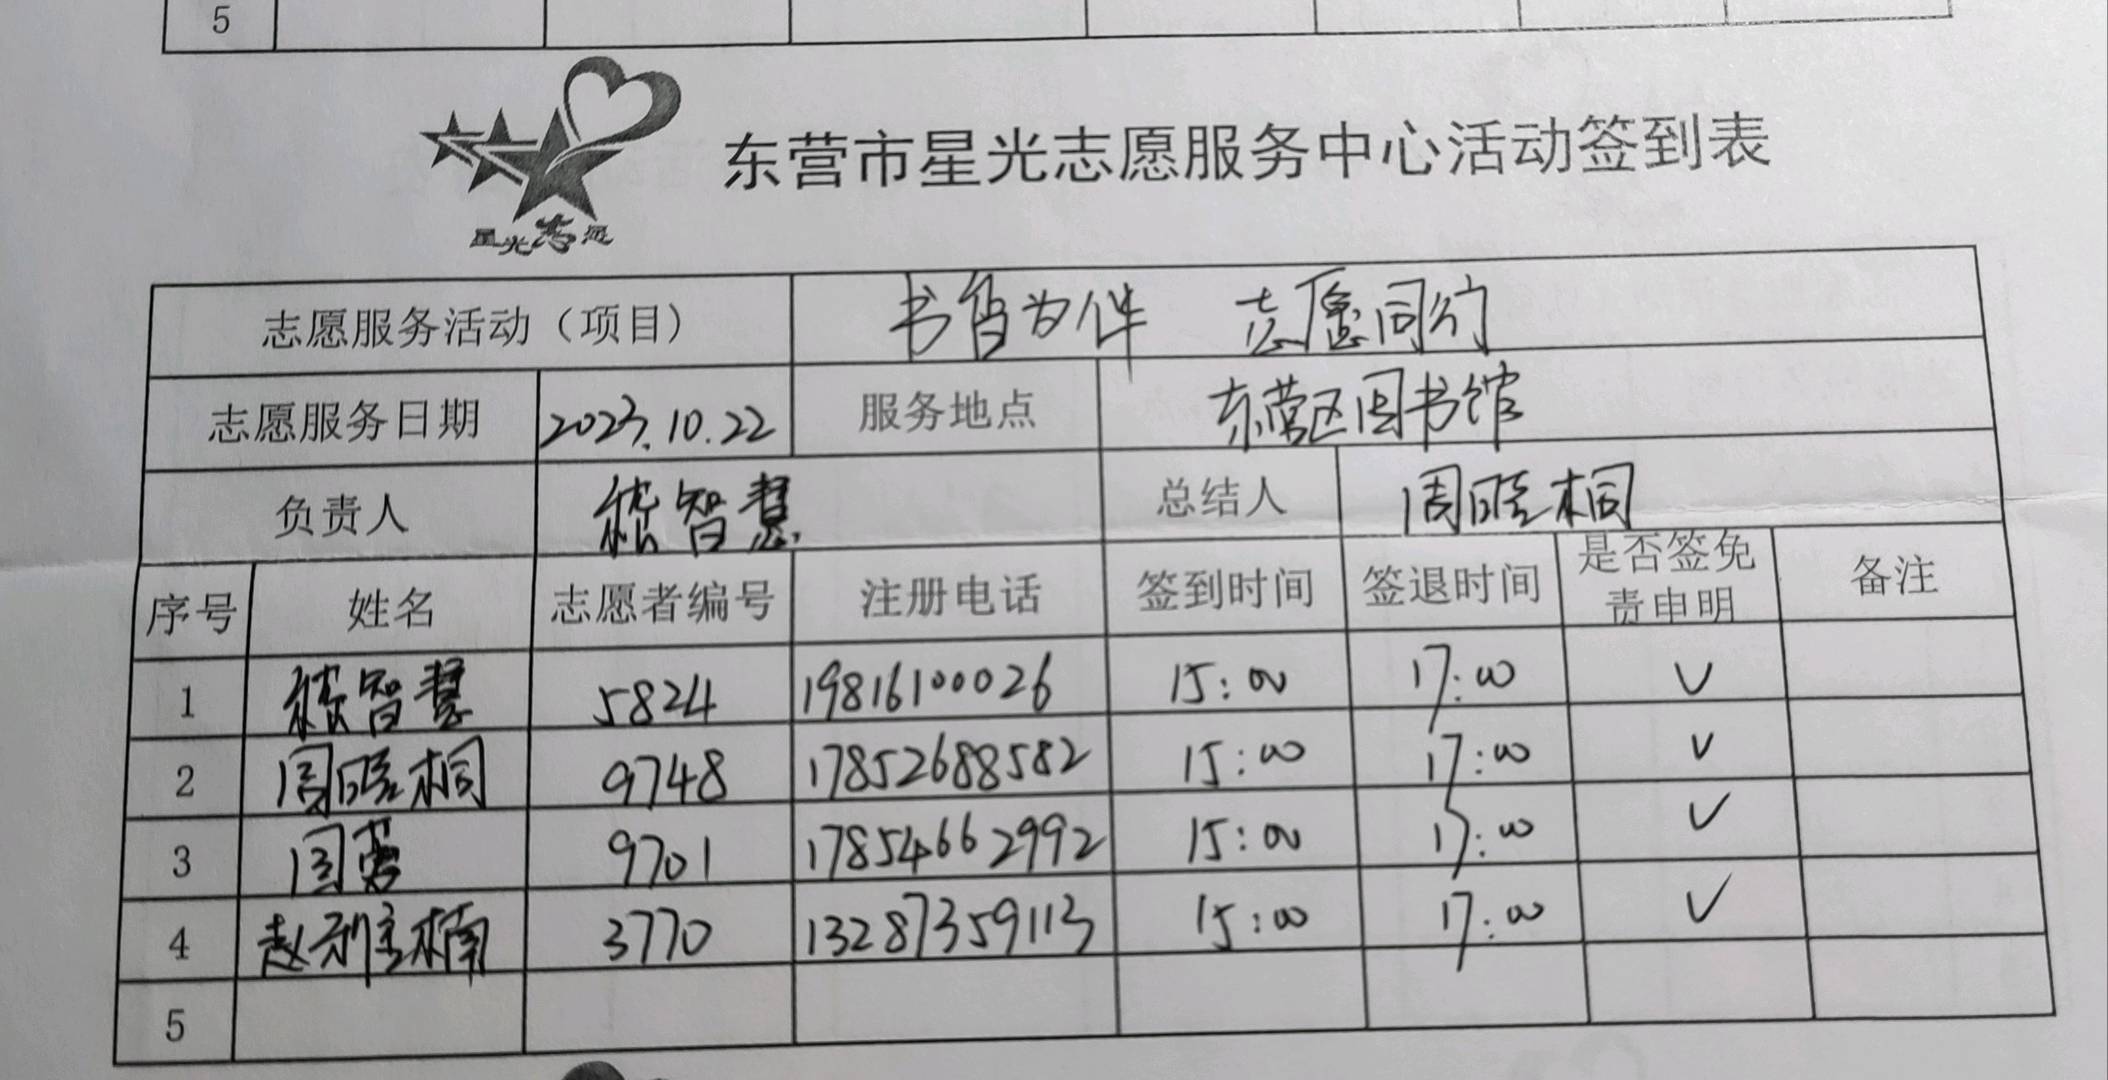 5
星光志愿
东营市星光志愿服务中心活动签到表
志愿服务活动（项目） 书香为伴 志愿同行
志愿服务日期 2023.10.22 服务地点 东营区图书馆
负责人 智慧 总结人 周晓桐
序号 姓名 志愿者编号 注册电话 签到时间 签退时间 是否签免责申明 备注
1 智慧 5824 19816100026 15:00 17:00 ✓
2 周晓桐 9748 17852688582 15:00 17:00 ✓
3 9701 17854662992 15:00 17:00 ✓
4 赵 楠 3770 13287359113 15:00 17:00 ✓
5